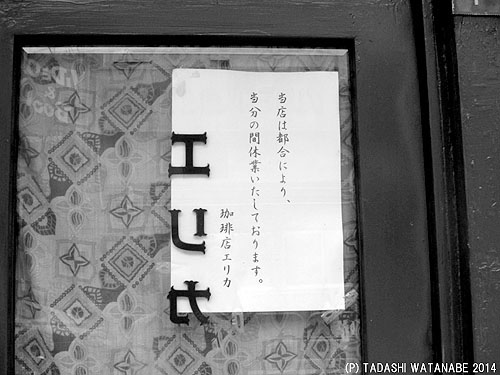 当店は都合により、
当分の間休業いたしております。
珈琲店エリカ
エリカ
(P) TADASHI WATANABE 2014